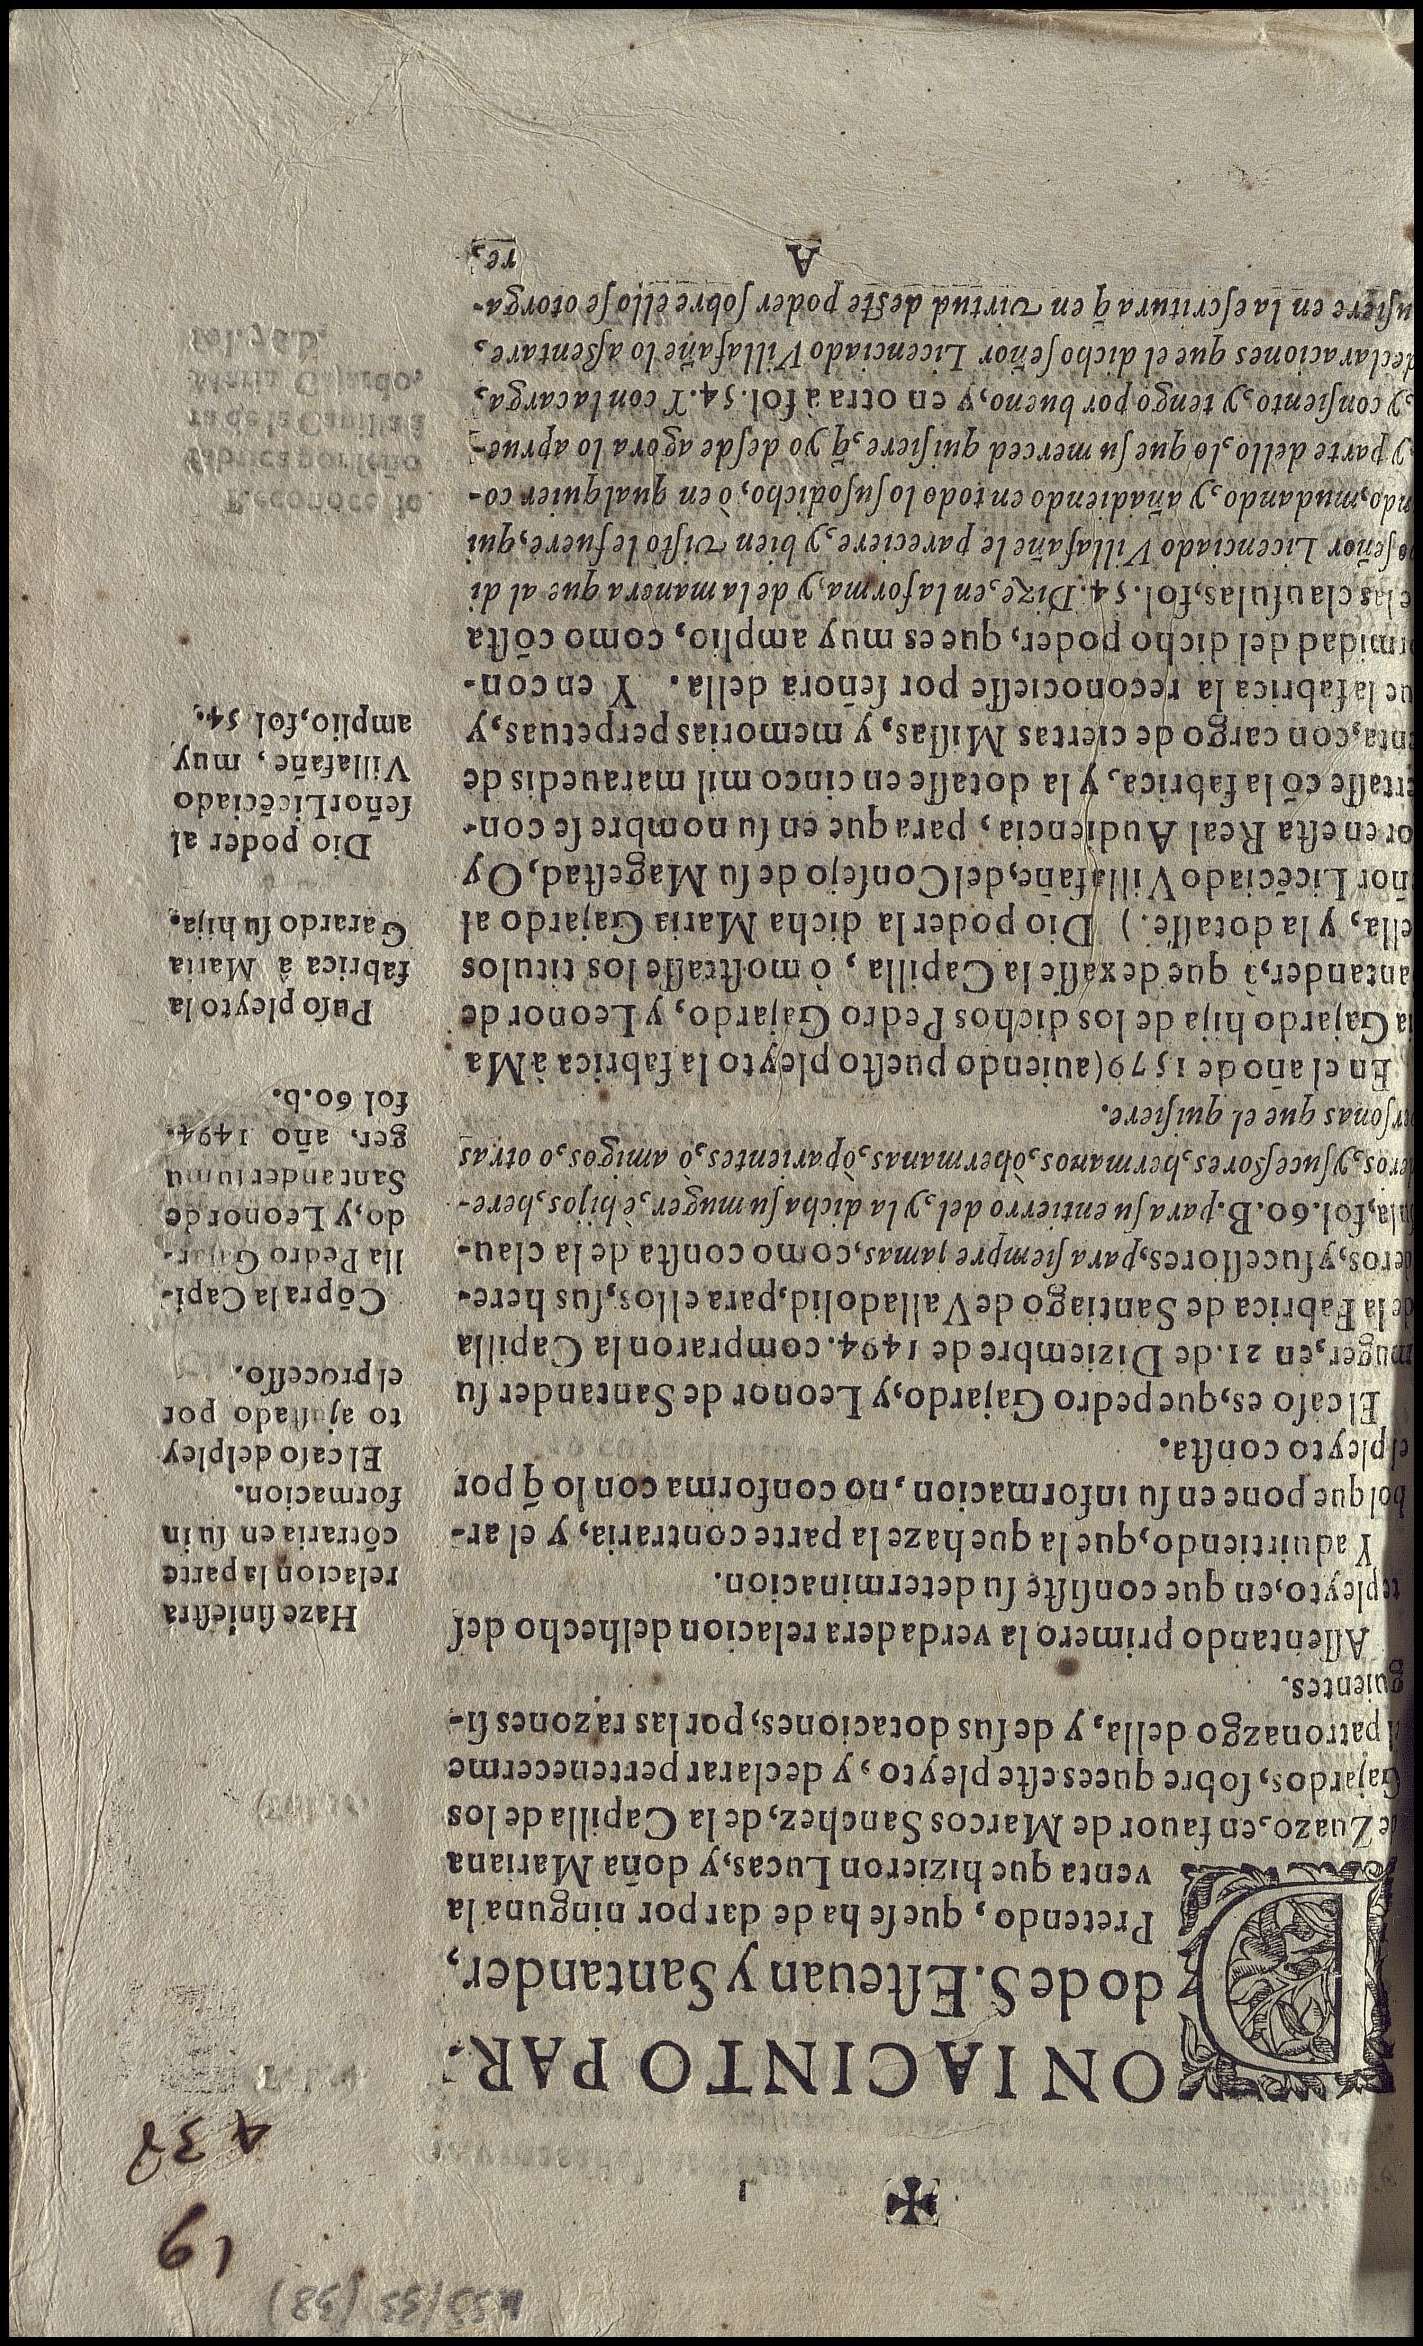 455/55 (58)
19
438
✠
1
DON IACINTO PAR-
do de S. Esteuan y Santander,
Pretendo, que se ha de dar por ninguna la
venta que hizieron Lucas, y doña Mariana
de Zuazo, en fauor de Marcos Sanchez, de la Capilla de los
Gajardos, sobre que es este pleyto, y declarar pertenecerme
patronazgo della, y de sus dotaciones, por las razones si-
guientes.
Assentando primero la verdadera relacion del hecho des
te pleyto, en que consiste su determinacion.
Y aduirtiendo, que la que haze la parte contraria, y el ar-
bol que pone en su informacion, no conforma con lo q̃ por
el pleyto consta.
El caso es, que pedro Gajardo, y Leonor de Santander su
muger, en 21. de Diziembre de 1494. compraron la Capilla
de la Fabrica de Santiago de Valladolid, para ellos, sus here-
deros, y sucessores, para siempre jamas, como consta de la clau-
sula, fol. 60. B. para su entierro del, y la dicha su muger, è hijos, here-
deros, y sucessores, hermanos, ò hermanas, ò parientes, o amigos, o otras
personas que el quisiere.
En el año de 1579 (auiendo puesto pleyto la fabrica à Ma
ria Gajardo hija de los dichos Pedro Gajardo, y Leonor de
Santander, à que dexasse la Capilla, ò mostrasse los titulos
della, y la dotasse.) Dio poder la dicha Maria Gajardo al
señor Licẽciado Villafañe, del Consejo de su Magestad, Oy
dor en esta Real Audiencia, para que en su nombre se con-
certasse cõ la fabrica, y la dotasse en cinco mil marauedis de
renta, con cargo de ciertas Missas, y memorias perpetuas, y
que la fabrica la reconociesse por señora della. Y en con-
formidad del dicho poder, que es muy amplio, como cõsta
de las clausulas, fol. 54. Dize, en la forma, y de la manera que al di
cho señor Licenciado Villafañe le pareciere, y bien visto le fuere, qui
tando, mudando, y añadiendo en todo lo susodicho, ò en qualquier co-
sa, y parte dello, lo que su merced quisiere, q̃ yo desde agora lo aprue-
bo, y consiento, y tengo por bueno, y en otra à fol. 54. Y con la carga,
declaraciones que el dicho señor Licenciado Villafañe lo assentare,
pusiere en la escritura q̃ en virtud deste poder sobre ello se otorga-
A
re,
Haze siniestra
relacion la parte
cõtraria en su in
formacion.
El caso del pley
to ajustado por
el processo.
Cõpra la Capi-
lla Pedro Gajar-
do, y Leonor de
Santander su mu
ger, año 1494.
fol 60. b.
Puso pleyto la
fabrica à Maria
Garardo su hija.
Dio poder al
señor Licẽciado
Villafañe, muy
amplio, fol 54.